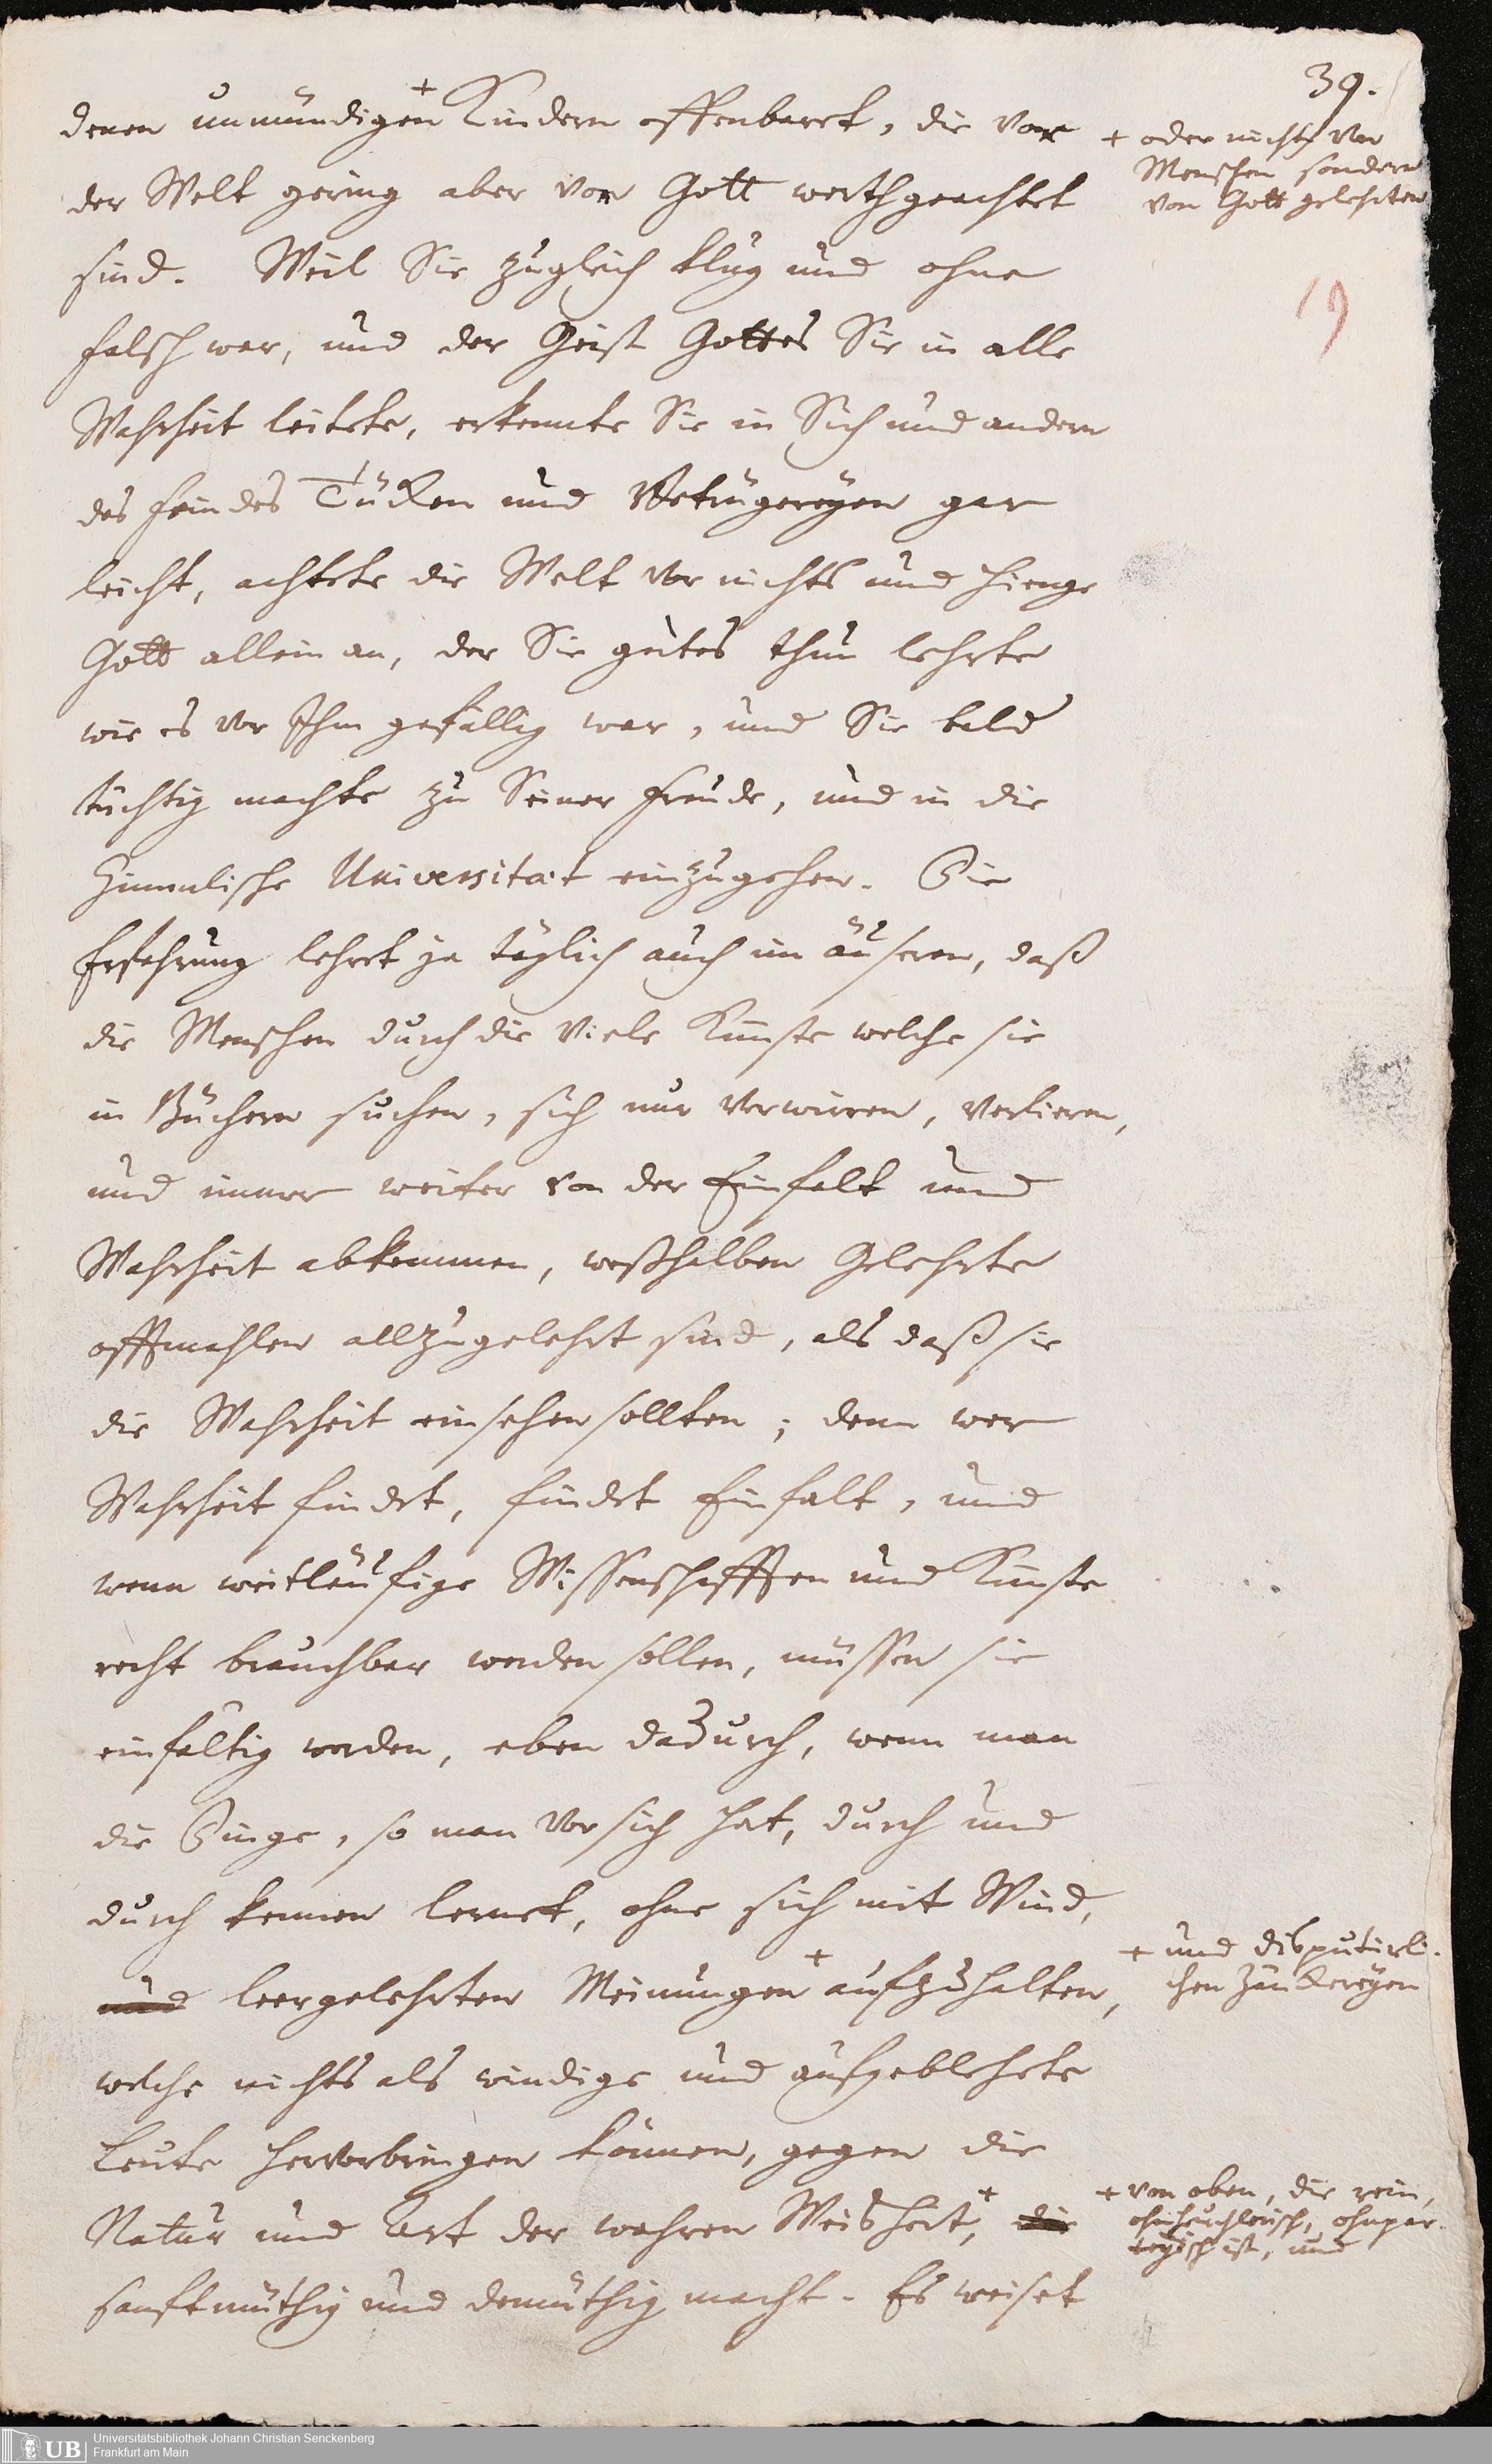 39.
denen unmündigen + Kindern offenbaret, die vor
+ oder nicht von
Menschen sondern
von Gott gelehrten
der Welt gering aber vor Gott werthgeachtet
sind. Weil Sie zugleich klug und ohne
19
falsch war, und der Geist Gottes Sie in alle
Wahrheit leitete, erkennte Sie in Sich und andern
des feindes Tücken und Betrügereyen gar
leicht, achtete die Welt vor nichts und hienge
Gott allein an, der Sie gutes thun lehrte
wie es vor Ihm gefällig war, und Sie bald
tüchtig machte zu Seiner Freude, und in die
Himmlische Universitaet einzugehen. Die
Erfahrung lehret ja täglich auch im äuseren, daß
die Menschen durch die viele Künste welche sie
in Büchern suchen, sich nur verwirren, verlieren,
und immer weiter von der Einfalt und
Wahrheit abkommen, weßhalben Gelehrte
offtmahlen allzugelehrt sind, als daß sie
die Wahrheit einsehen sollten; denn wer
Wahrheit findet, findet Einfalt, und
wenn weitläufige Wissenschafften und Künste
recht brauchbar werden sollen, müssen sie
einfältig werden, eben dadurch, wenn man
die Dinge, so man vor sich hat, durch und
durch kennen lernet, ohne sich mit Wind,
und leergelehrten Meinungen + aufzuhalten,
+ und disputirli-
chen Zänkereyen
welche nichts als windige und aufgeblehete
Leute hervorbringen können, gegen die
Natur und Art der wahren Weisheit, + die
+ von oben, die rein,
ohnheuchlerisch, ohnpar-
teyisch ist, und
sanftmüthig und demüthig macht. Es weiset
Universitätsbibliothek Johann Christian Senckenberg
Frankfurt am Main
UB